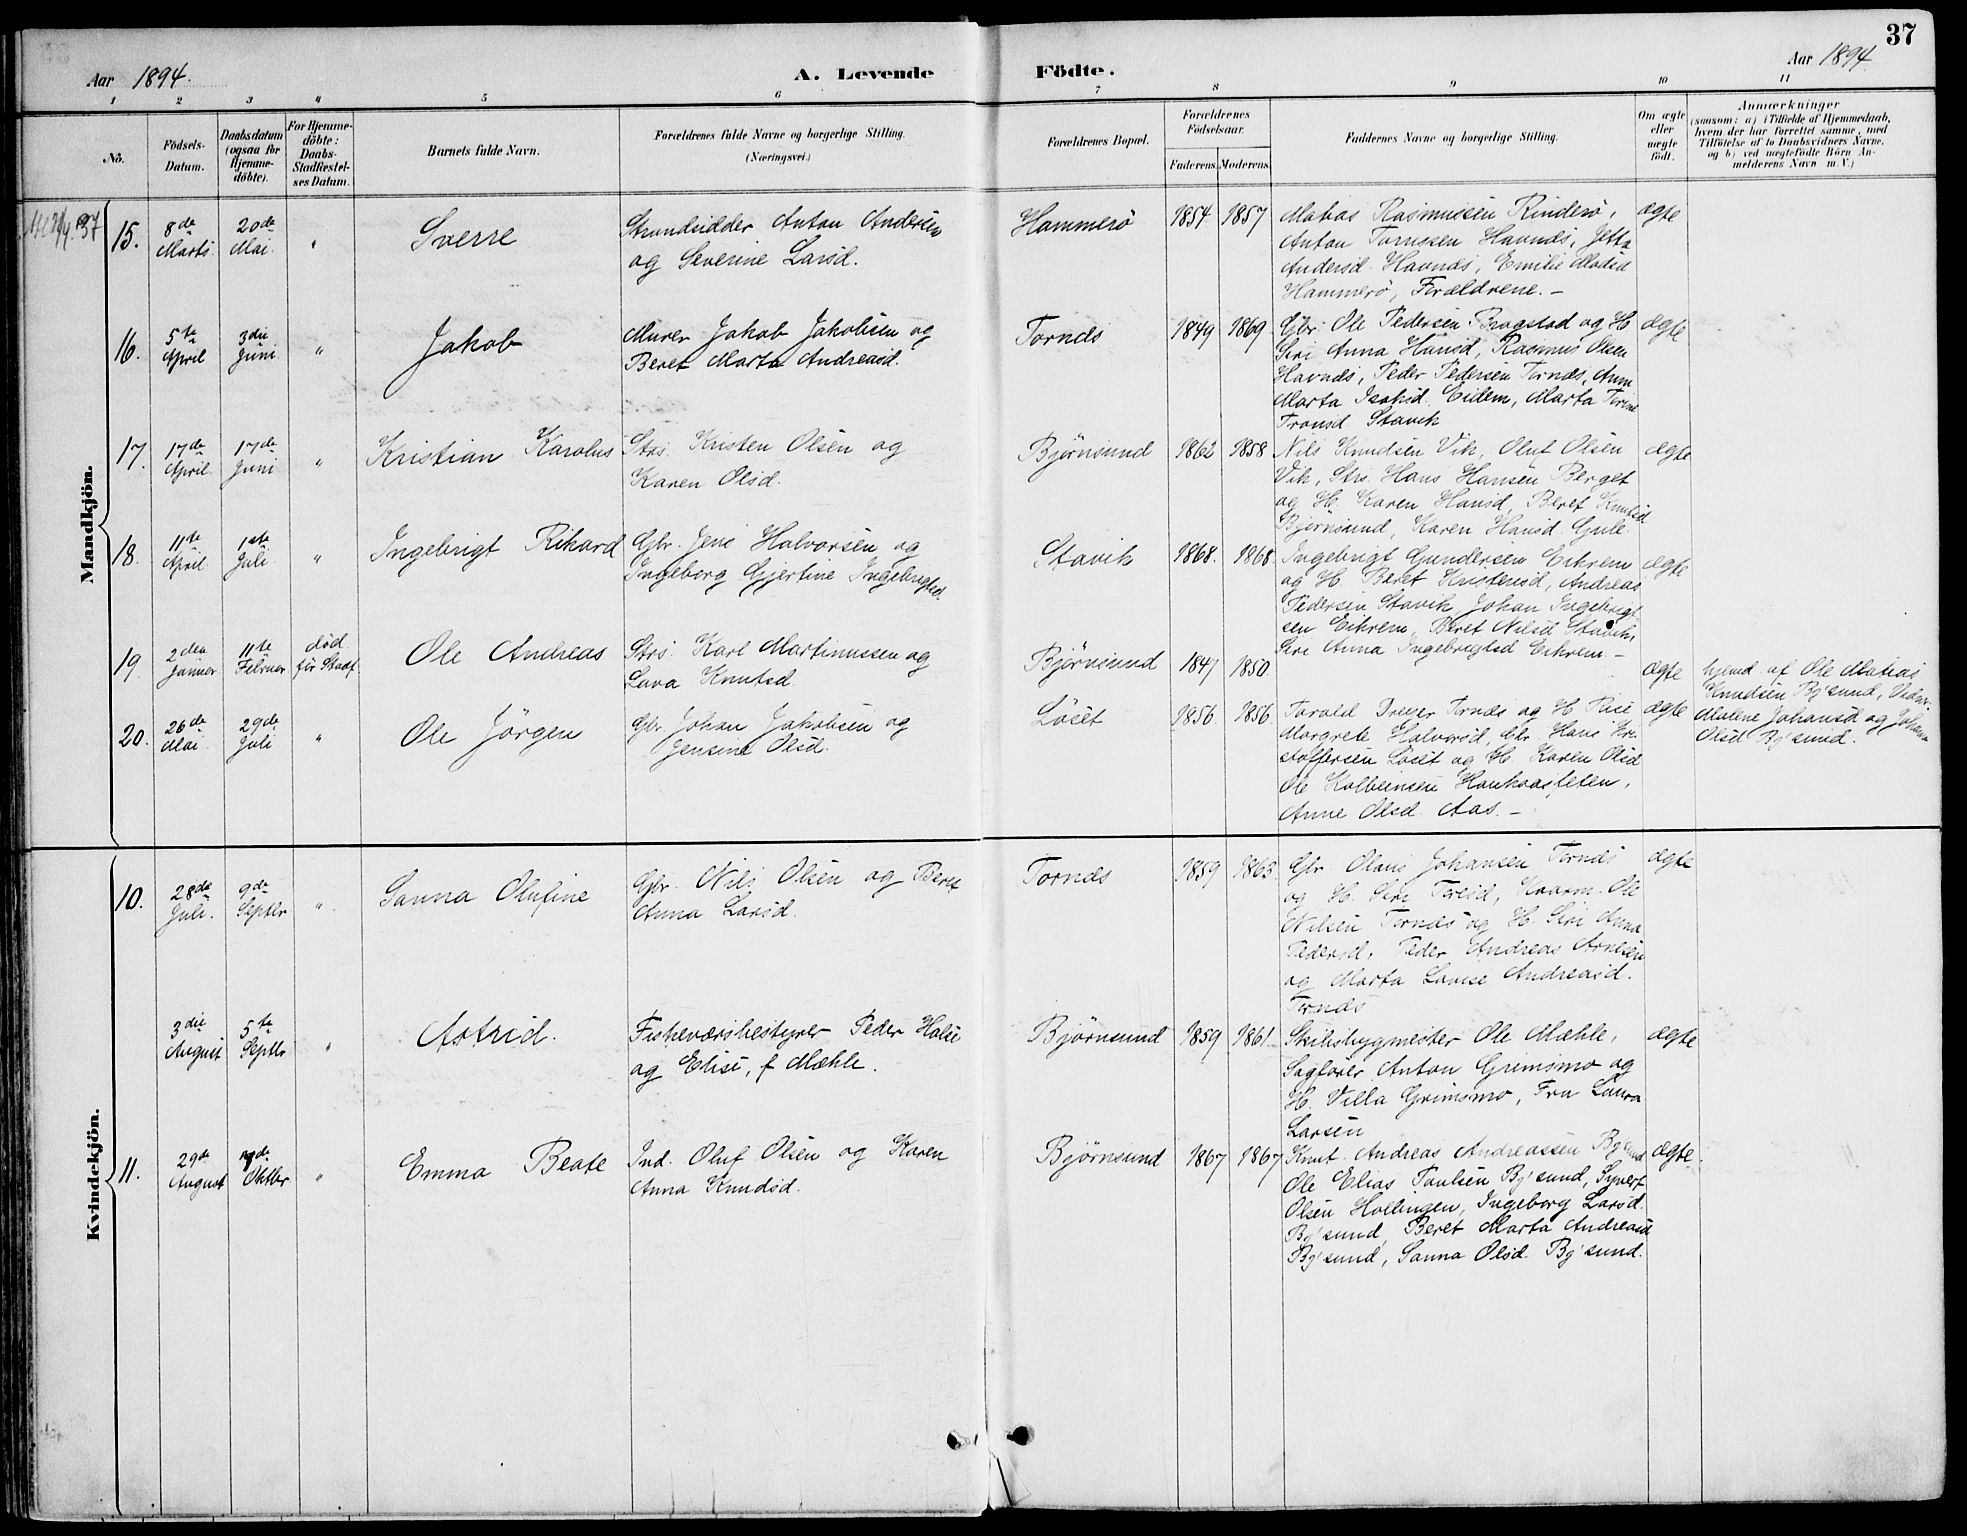 37
Aar 1894.
A. Levende Födte.
Aar 1894
1 2 3 4 5 6 7 8 9 10 11
No.
Födsels-Datum.
Daabsdatum (ogsaa for Hjemme-döbte).
For Hjemme-döbte: Daabs-Stadfæstel-ses Datum.
Barnets fulde Navn.
Forældrenes fulde Navne og borgerlige Stilling. (Næringsvei.)
Forældrenes Bopæl.
Forældrenes Födselsaar.
Faderens. Moderens.
Faddernes Navne og borgerlige Stilling.
Om ægte eller uægte födt.
Anmærkninger
(saasom: a) i Tilfælde af Hjemmedaab,
hvem der har forrettet samme, med
Tilföielse af to Daabsvidners Navne,
og b) ved uægtefödte Börn An-
melderens Navn m. V.)
Mandkjön.
15. 8de Marts. 20de Mai. " Sverre
Strandsidder Anton Andersen
og Severine Larsd.
Hammerö 1854 1857
Mabas Rasmussen Rinderö,
Anton Tornssen Havnæs, Jetta
Andersd. Havnæs, Emilie Madsd
Hammerö, Forældrene. –
ægte
16. 5te April 3die Juni. " Jakob
Murer Jakob Jakobsen og
Beret Marta Andreasd.
Tornæs 1849 1869
Gbr. Ole Pedersen Brogstad og H.
Siri Anna Hansd, Rasmus Olsen
Havnæs, Peder Pedersen Tornæs, Anne
Marta Isaksd. Eidem, Marta Torine
Tronsd Stavik
ægte
17. 17de April. 17de Juni " Kristian Karolus
Strs. Kristen Olsen og
Karen Olsd.
Björnsund 1862 1858
Nils Knudsen Vik, Oluf Olsen
Vik, Strs. Hans Hansen Berget
og H. Karen Hansd, Beret Knutsd
Björnsund, Karen Hansd. Gule.
ægte
18. 11te April. 1ste Juli. " Ingebrigt Rikard
Gbr. Jens Halvorsen og
Ingeborg Gjertine Ingebrigtsd.
Stavik 1868. 1868.
Ingebrigt Gundersen Eikrem
og H. Beret Kristensd, Andreas
Pedersen Stavik, Johan Ingebrigt
sen Eikrem, Beret Nilsd Stavik,
Siri Anna Ingebrigtsd Eikrem. –
ægte
19. 2den Januar 11te Februar död för Stadf. Ole Andreas
Strs. Karl Martinussen og
Lava Knutsd.
Björnsund 1847 1850.
ægte
hjemd. af Ole Matias
Knudsen Bj'sund, Vidner
Malene Johansd og Johanna
Olsd Bj'sund.
20. 26de Mai 29de Juli " Ole Jörgen
Gbr. Johan Jakobsen og
Jensine Olsd.
Löset 1856. 1856.
Torold Drever Tornæs og H.
Margrete Halvorsd, Gbr. Hans Kri
stoffersen Löset og H. Karen Olsd
Ole Kolbeinsen Haukaasleten,
Anne Olsd. Aas. –
ægte
Kvindekjön.
10. 28de Juli. 9de Septbr " Sanna Olufine
Gbr. Nils Olsen og Beret
Anna Larsd.
Tornæs 1859 1863.
Gbr. Olaus Johansen Tornæs
og H. Siri Toresd, Kaarm. Ole
Nilsen Tornæs og H. Siri Anna
Pedersd, Peder Andreas Arnesen
og Marta Lovise Andreasd.
Tornæs
ægte
3die August 5te Septbr " Astrid.
Fiskeværsbestyrer Peder Halse
og Elise, f Mæhle.
Björnsund 1859 1861
Skibsbygmester Ole Mæhle,
Sagförer Anton Grimsmo og
H. Villa Grimsmo, Fru Laura
Larsen
ægte
11. 29de August Oktbr " Emma Beate
Ind. Oluf Olsen og Karen
Anna Knudsd.
Björnsund 1867 1867
Knut Andreas Andreassen Bj'sund
Ole Elias Paulsen Bj'sund, Syvert
Olsen Hollingen, Ingeborg Larsd.
Bj'sund, Beret Marta Andreasd
Bj'sund, Sanna Olsd. Bj'sund.
ægte.